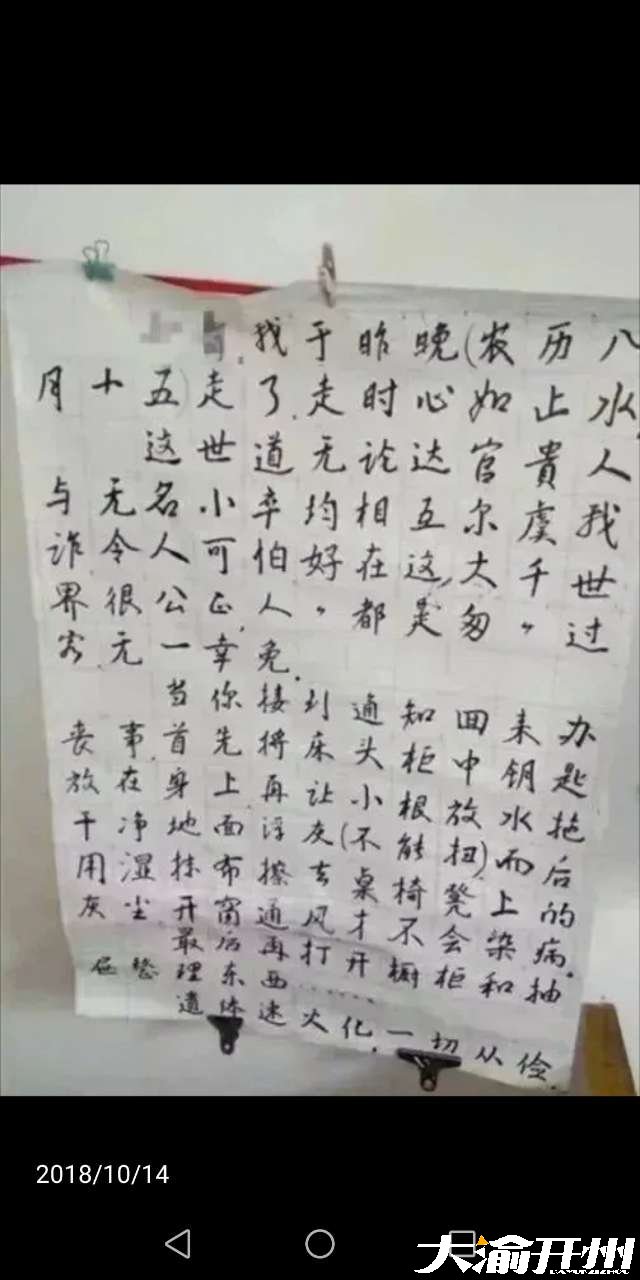 我于昨晚(农历八
月十五)走了.走时心如止水,
这世道无论达官贵人
与无名小卒均相互尔虞我
诈.令人可怕.好在这大千世
界很公正,人〃都是匆〃过
客.无一幸免.
当你接到通知回来办
丧事首先将床头柜中钥匙
放在身上再让小根放水拖
干净地面浮灰(不能扭)而后
用湿抹布擦去桌椅凳上的
灰尘.开窗通风才不会染病.
最后再打开橱柜和抽
屉整理东西.....
遗体速火化.一切从俭.
2018/10/14
大渝开州